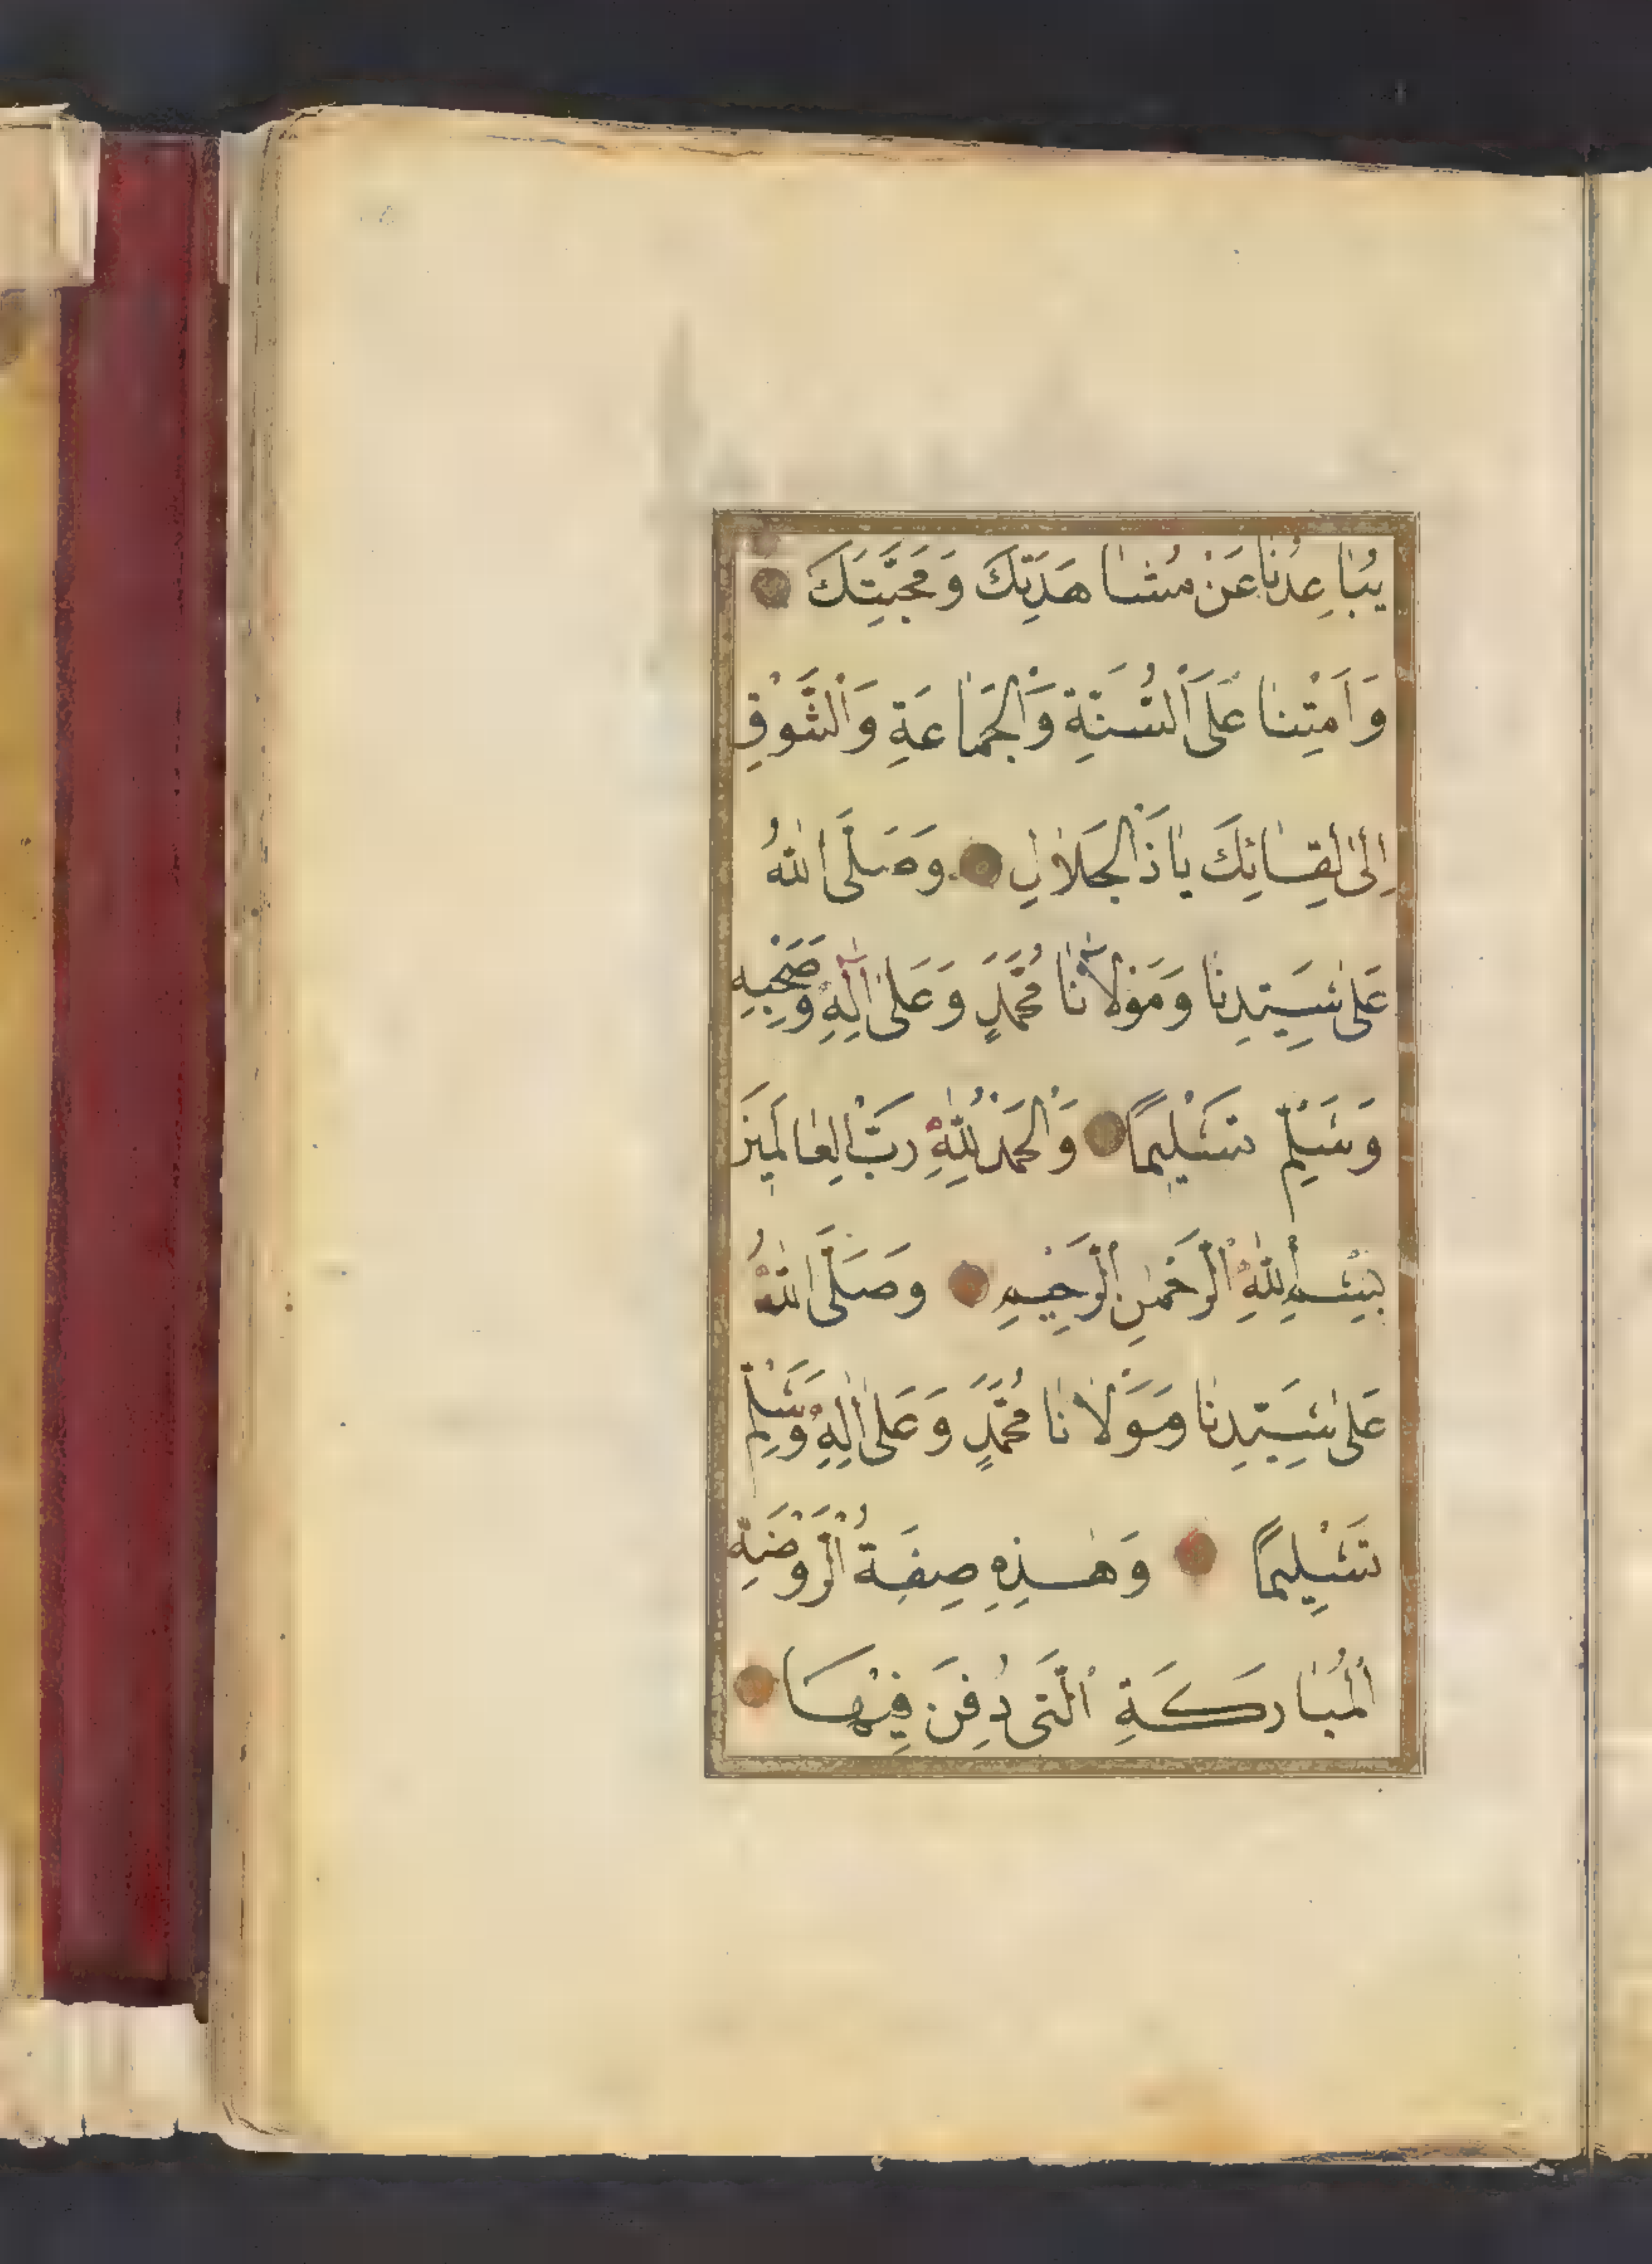 يُبَاعِدُنَا عَنْ مُشَاهَدَتِكَ وَمَحَبَّتِكَ
وَاَمِتْنَا عَلَى اَلْسُّنَّةِ وَالْجَمَاعَةِ وَالْشَّوْقِ
اِلَى لِقَائِكَ يَا ذَا لْجَلَالِ وَصَلَّى اللهُ
عَلَى سَيِّدِنَا وَمَوْلَانَا مُحَمَّدٍ وَعَلَى اٰلِهِ وَصَحْبِهِ
وَسَلِّمْ تَسْلِيمًا وَالْحَمْدُ لِلّٰهِ رَبِّ الْعَالَمِينَ
بِسْمِ اللهِ الْرَّحْمٰنِ الْرَّحِيمِ وَصَلَّى اللهُ
عَلَى سَيِّدِنَا وَمَوْلَانَا مُحَمَّدٍ وَعَلَى اٰلِهِ وَسَلِّمْ
تَسْلِيمًا وَهٰذِهِ صِفَةُ الْرَّوْضَةِ
الْمُبَارَكَةِ الَّتِى دُفِنَ فِيْهَا